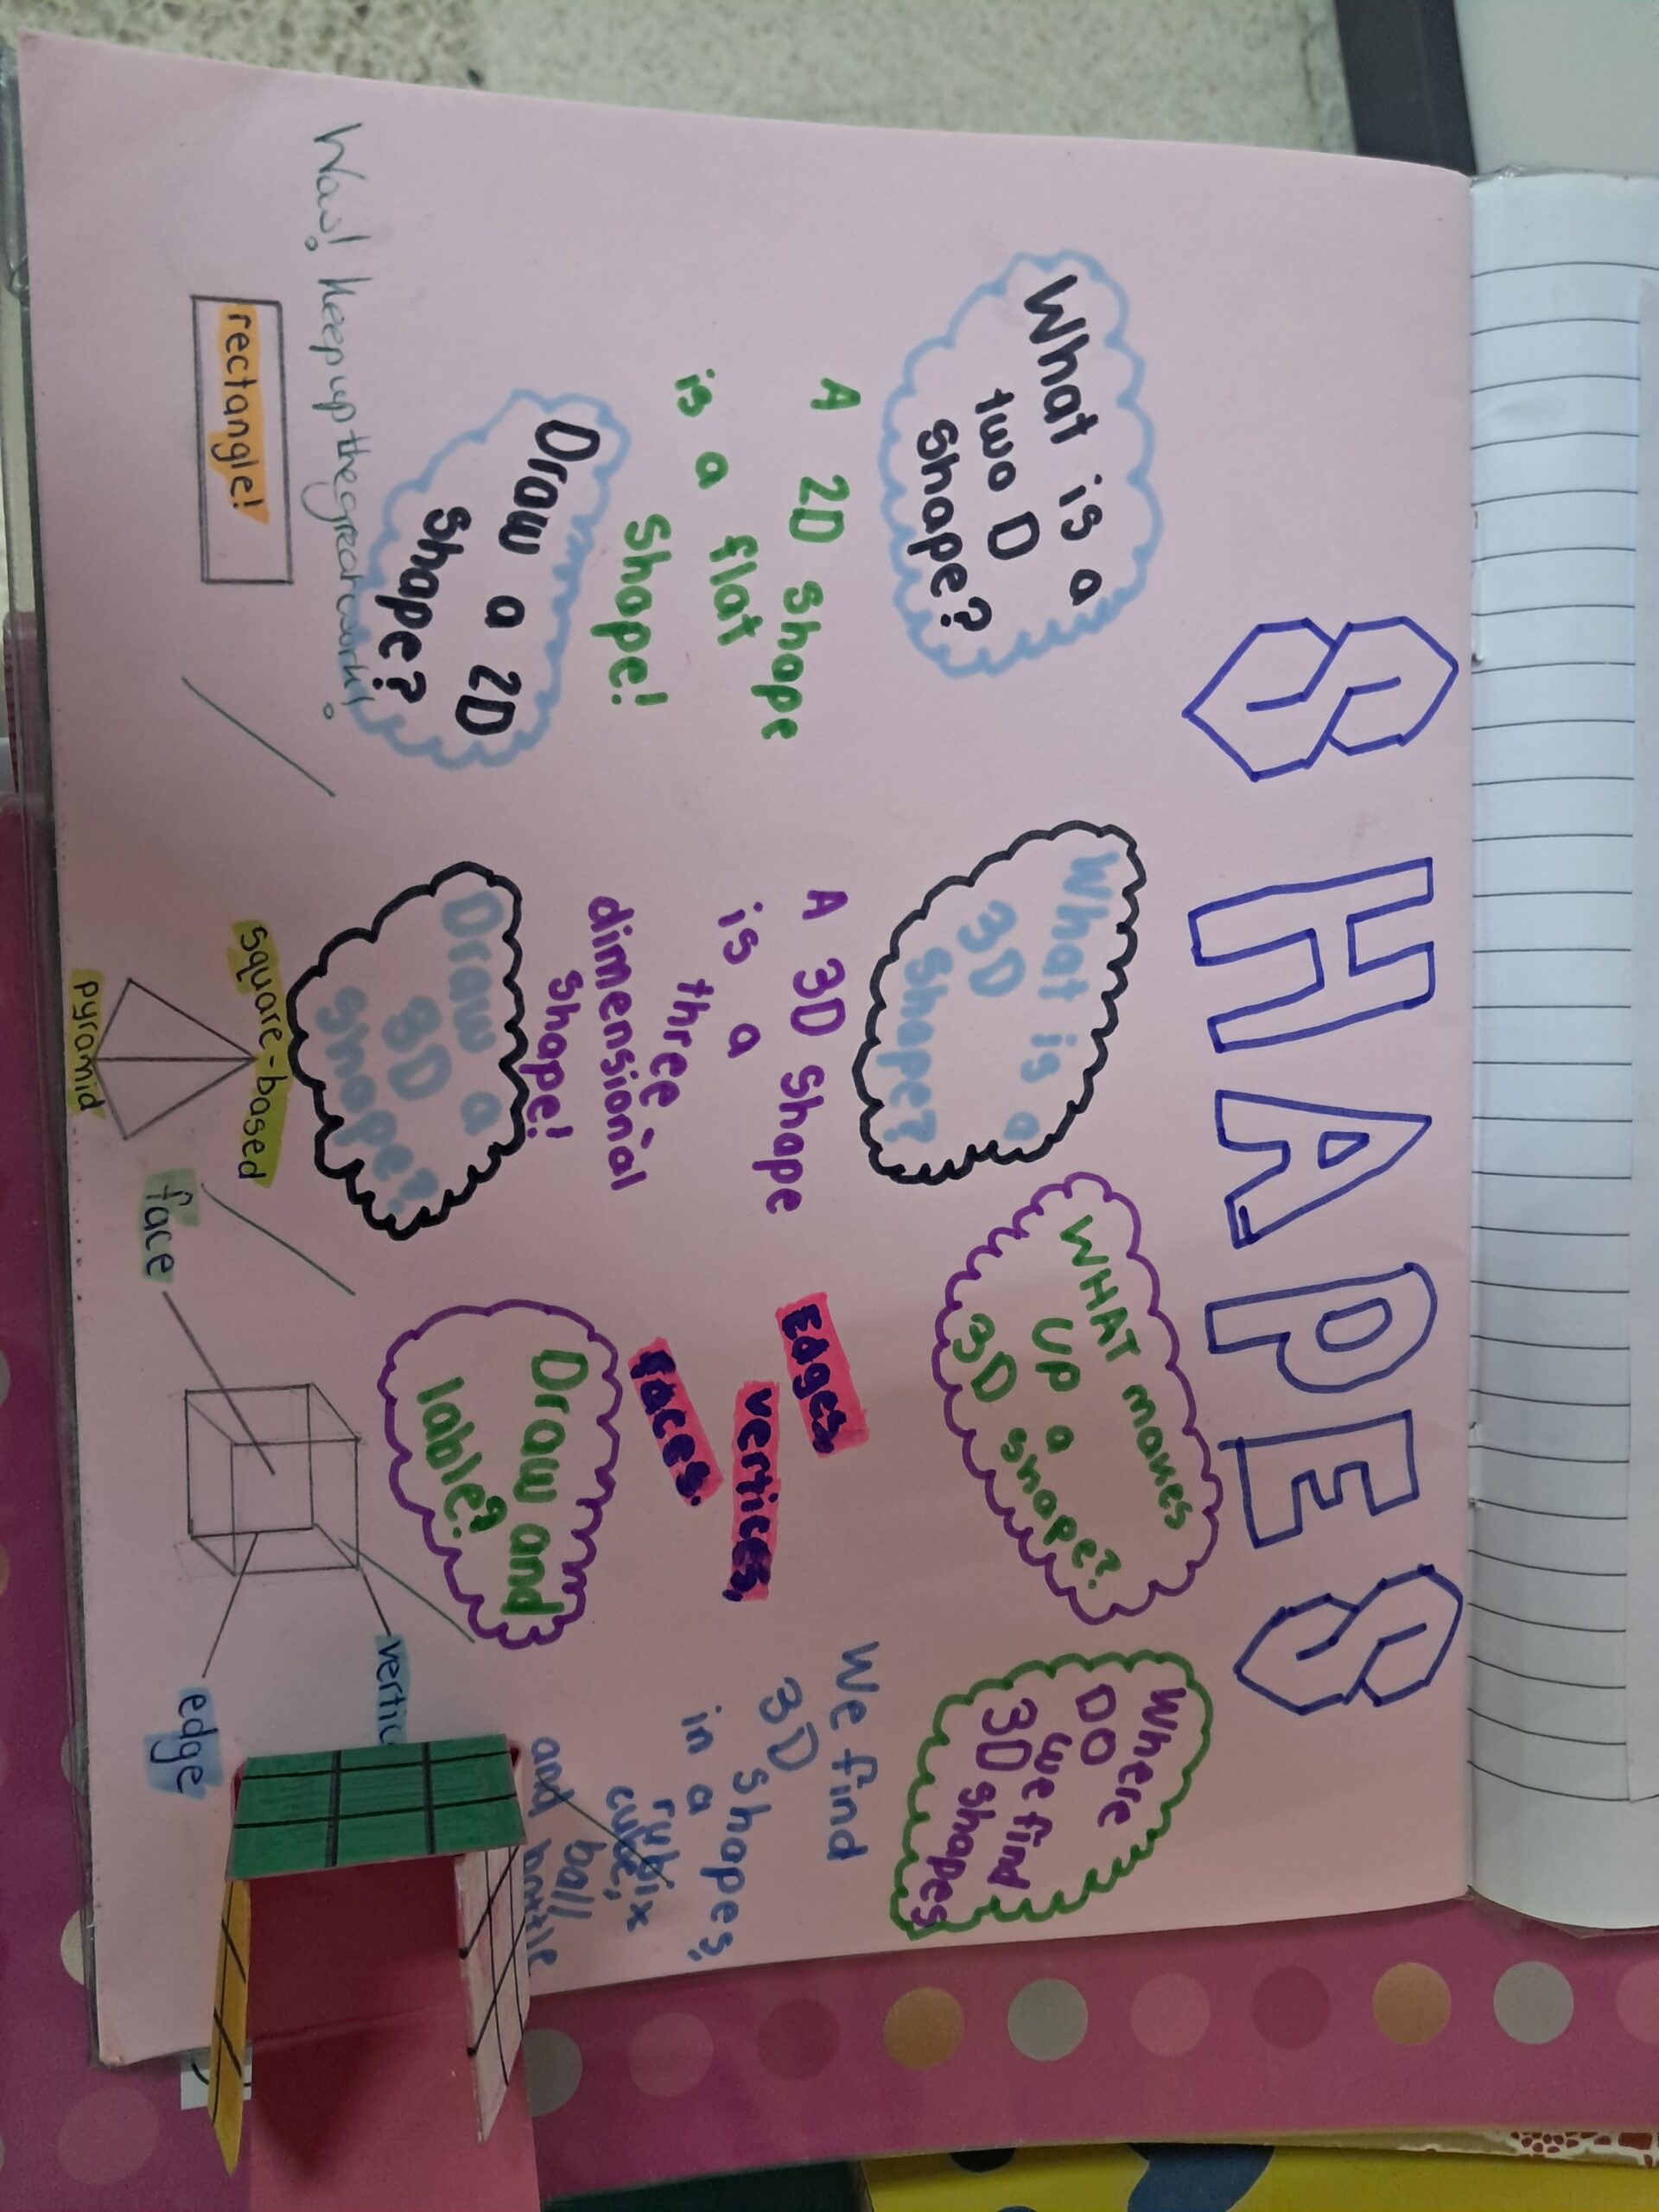 SHAPES
What is a
two D
shape?
A 2D shape
is a flat
shape!
Draw a 2D
shape?
Wow! Keep up the great work!
rectangle!
What is a
3D
shape?
A 3D shape
is a
three-
dimensional
shape!
Draw a
3D
shape?
square-based
pyramid
WHAT makes
up a
3D shape?
Edges,
vertices,
faces.
Draw and
lable?
face
edge
Where
DO
we find
3D shapes
We find
3D
shapes,
in a
rybix
cube,
ball
and